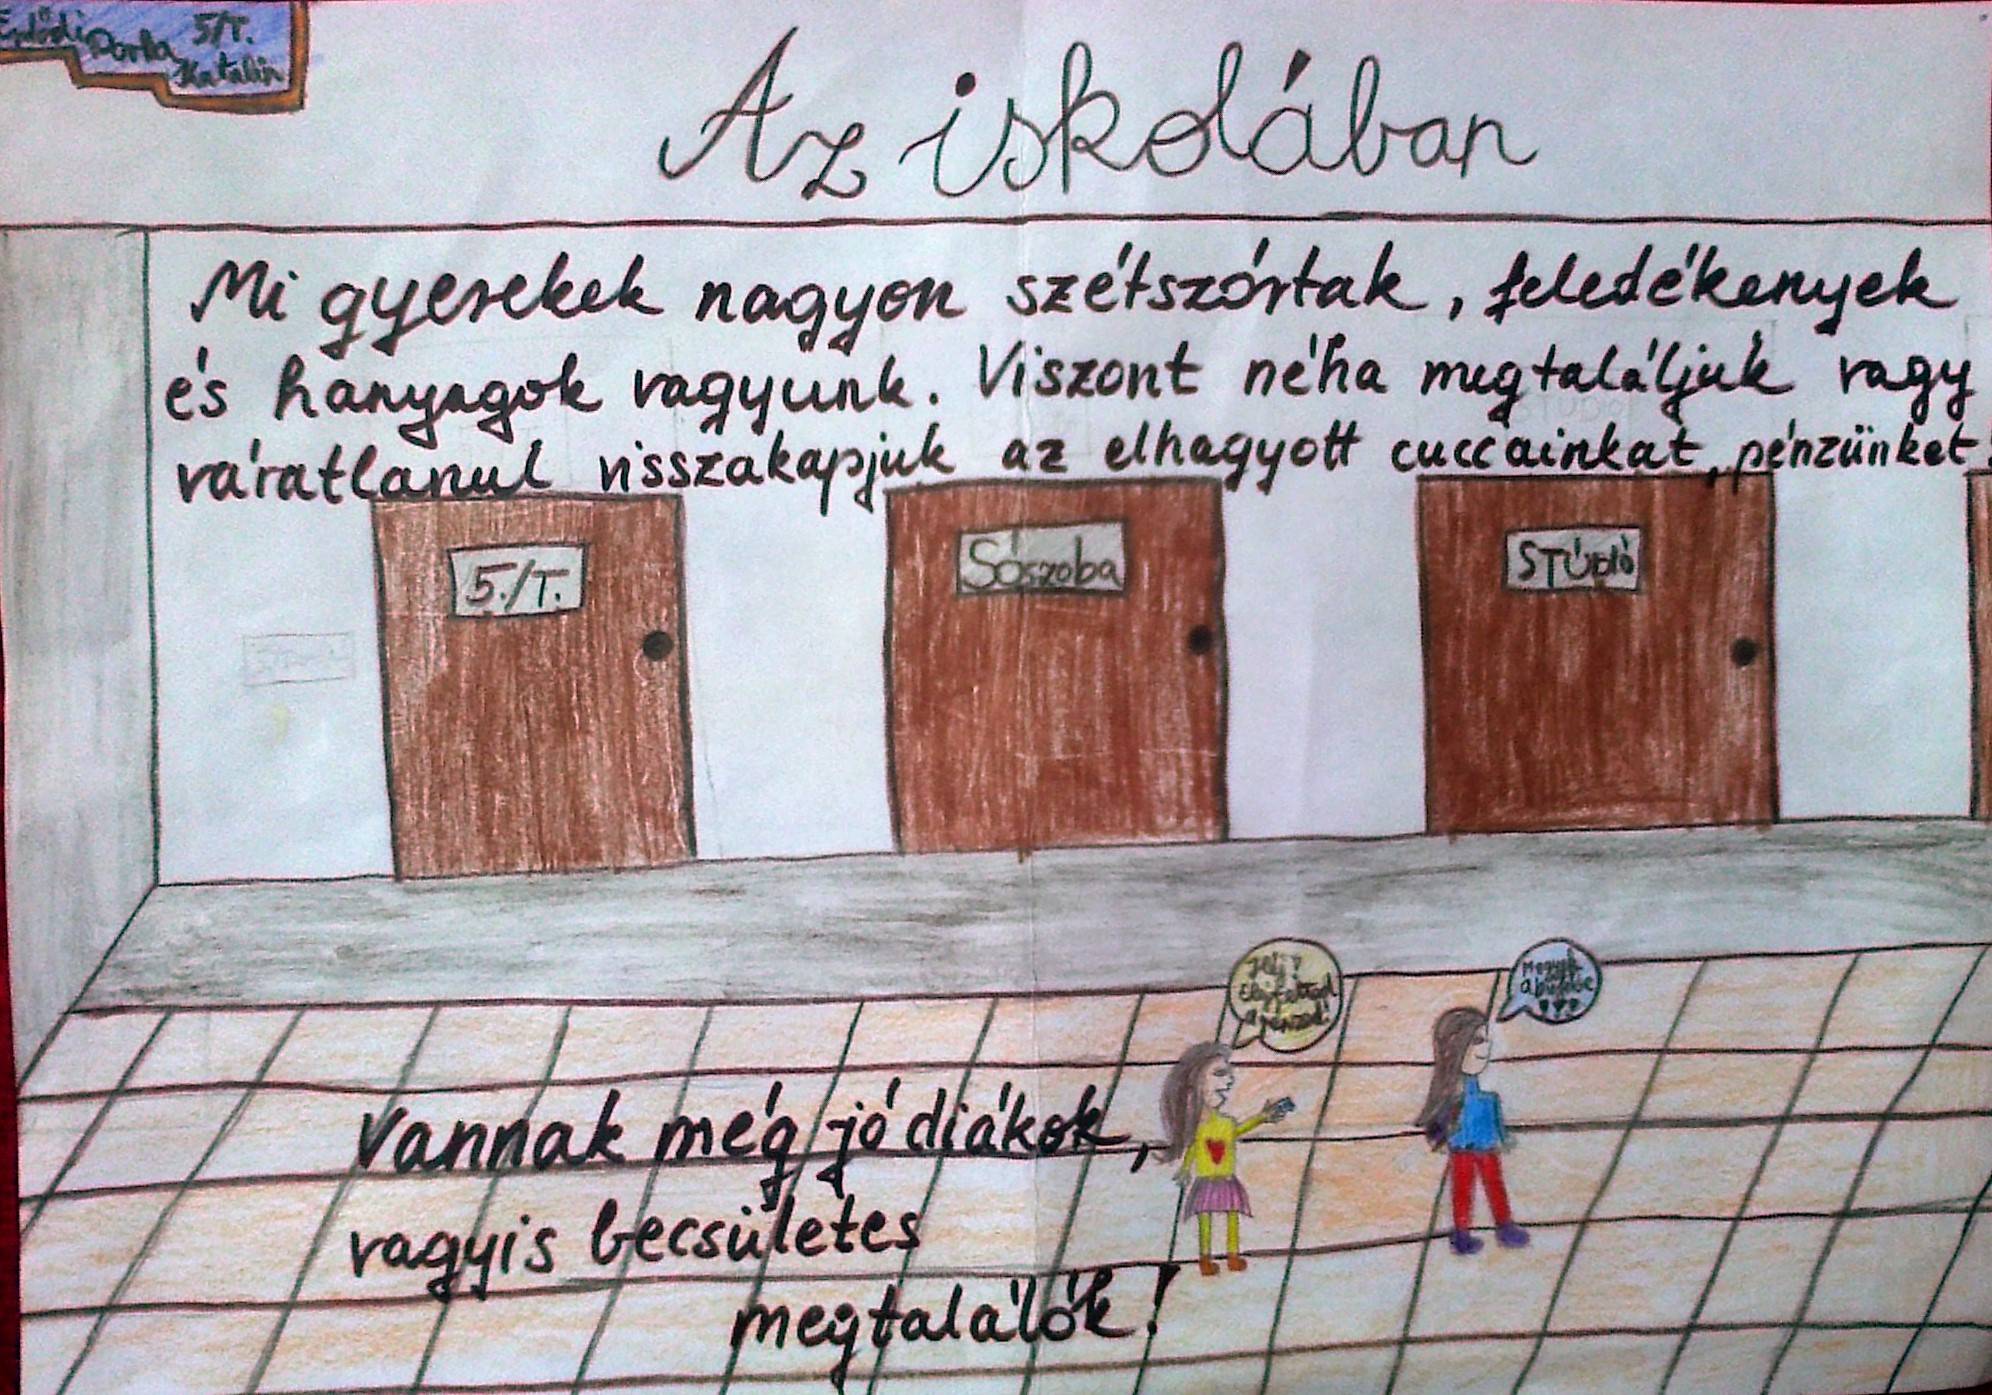 Dorka 5/T.
Katalin
Az iskolában
Mi gyerekek nagyon szétszórtak, feledékenyek
és hanyagok vagyunk. Viszont néha megtaláljuk vagy
váratlanul visszakapjuk az elhagyott cuccainkat, pénzünket!
5./T.
Sószoba
STÚDIÓ
elejtetted
a pénzed!
Megyek
a büfébe
Vannak még jó diákok,
vagyis becsületes
megtalálók!